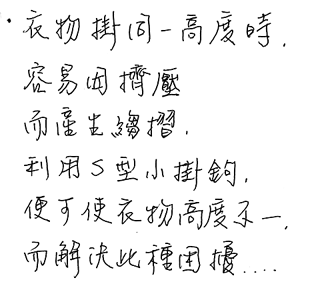 ·衣物掛同一高度時,
容易因擠壓
而產生縐摺,
利用S型小掛鉤,
便可使衣物高度不一,
而解決此種困擾....